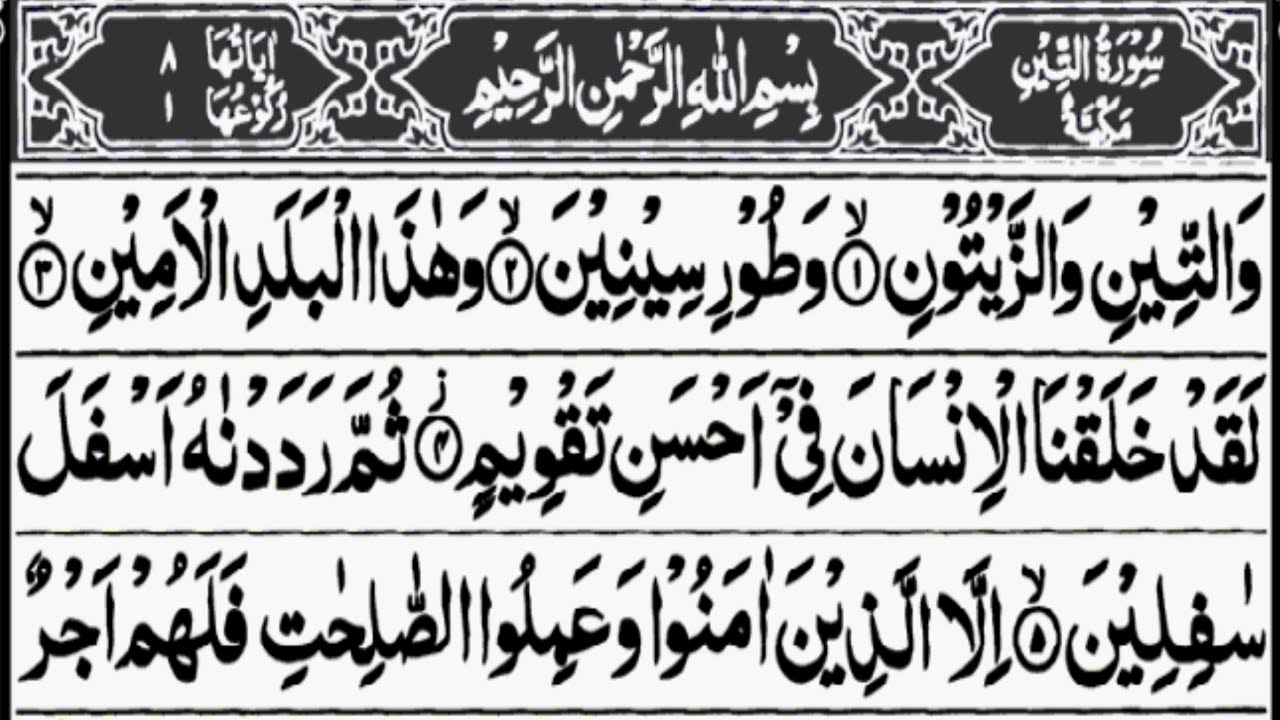 سُوْرَةُ التِّيْنِ
مَكِّيَّةٌ
بِسْمِ اللّٰهِ الرَّحْمٰنِ الرَّحِيْمِ
اٰيَاتُهَا ٨
رُكُوْعُهَا ١
وَالتِّيْنِ وَالزَّيْتُوْنِ ۙ﴿۱﴾ وَطُوْرِ سِيْنِيْنَ ۙ﴿۲﴾ وَهٰذَا الْبَلَدِ الْاَمِيْنِ ۙ﴿۳﴾
لَقَدْ خَلَقْنَا الْاِنْسَانَ فِيْۤ اَحْسَنِ تَقْوِيْمٍ ؗ﴿۴﴾ ثُمَّ رَدَدْنٰهُ اَسْفَلَ
سٰفِلِيْنَ ۙ﴿۵﴾ اِلَّا الَّذِيْنَ اٰمَنُوْا وَعَمِلُوا الصّٰلِحٰتِ فَلَهُمْ اَجْرٌ